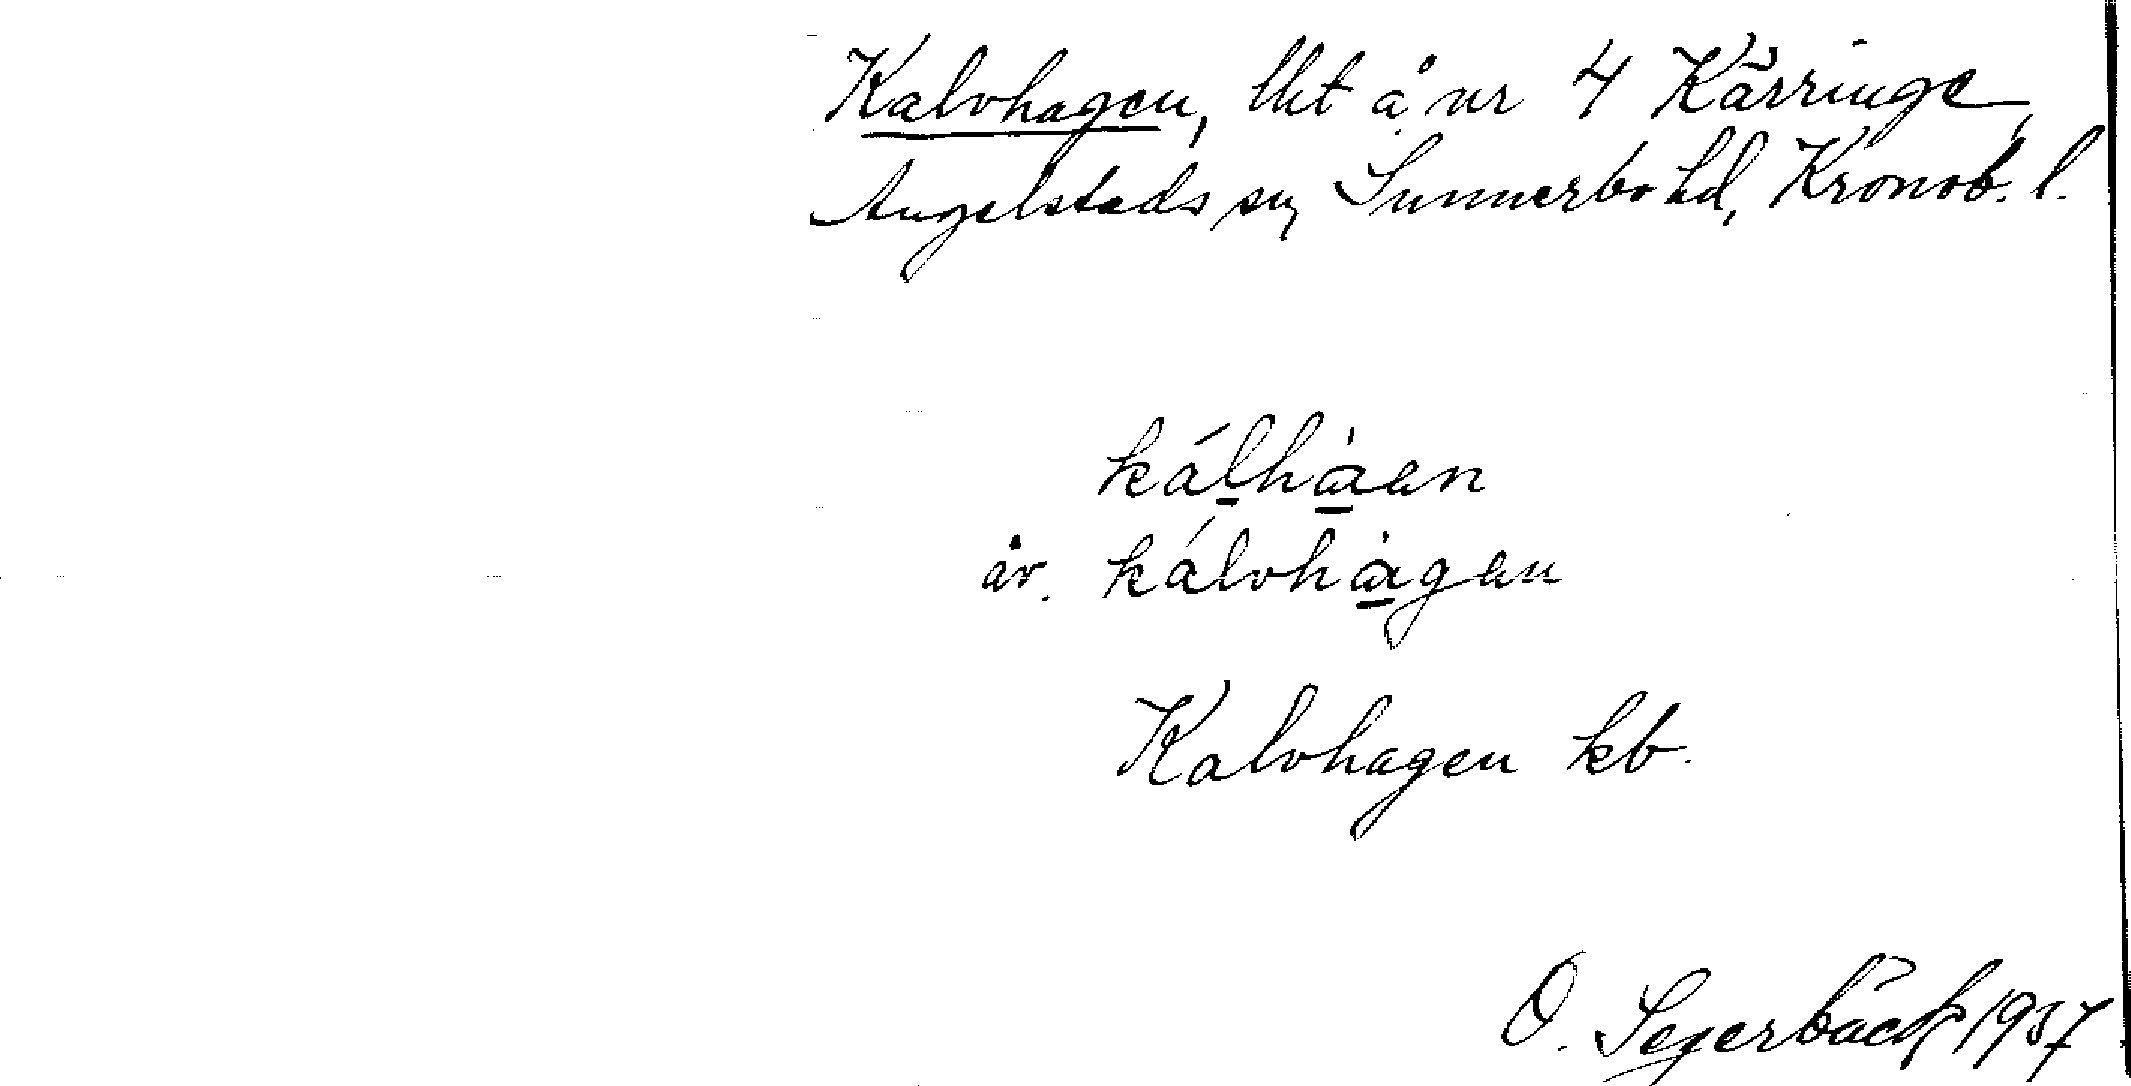 Kalvhagen, lht å nr 4 Kärringe,
Angelstads sn, Sunnerbo hd, Kronob. l.
kálhàan
åv. kálvhàgan
Kalvhagen kb.
O. Segerbäck 1937